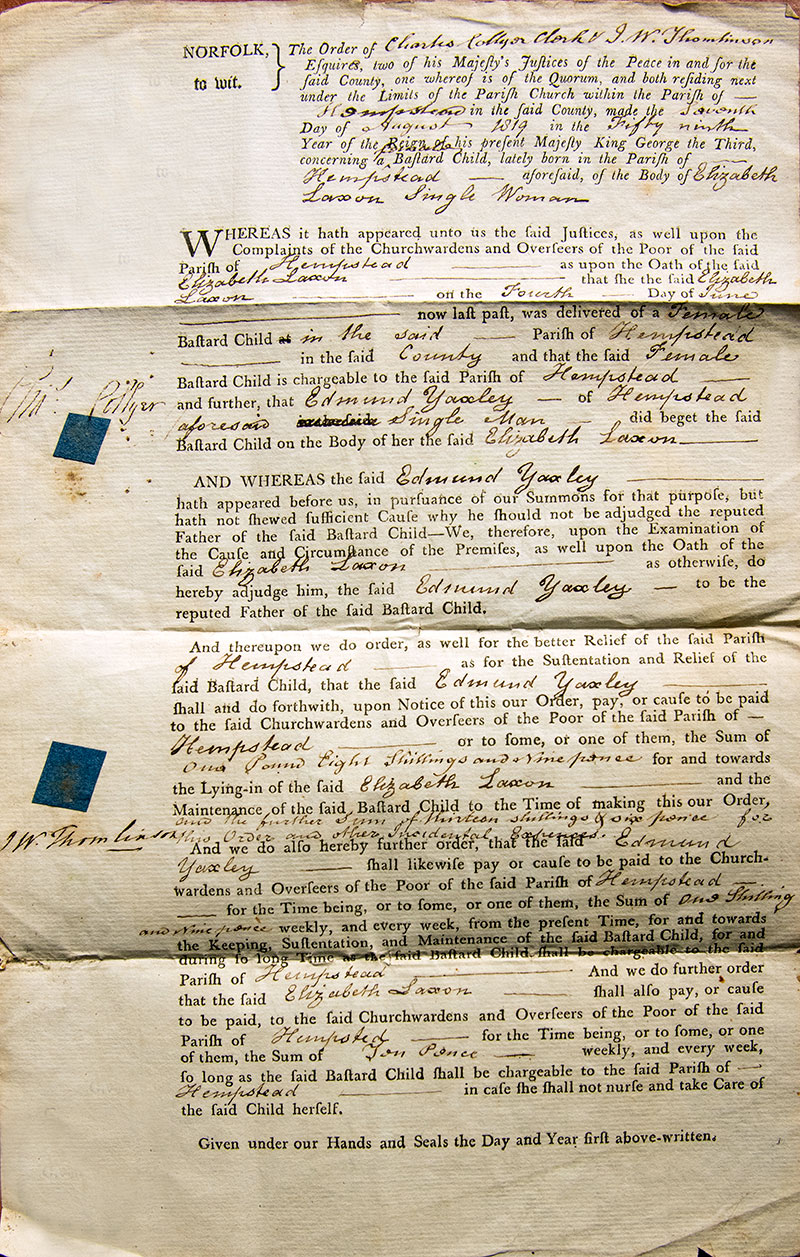 NORFOLK, } The Order of Charles Collyer Clerk & J. W. Thomlinson
to wit. Esquires, two of his Majeſty's Juſtices of the Peace in and for the
ſaid County, one whereof is of the Quorum, and both reſiding next
under the Limits of the Pariſh Church within the Pariſh of —
Hempstead in the ſaid County, made the Seventh
Day of August 1819 in the Fifty ninth
Year of the Reign of his preſent Majeſty King George the Third,
concerning a female Baſtard Child, lately born in the Pariſh of —
Hempstead — aforeſaid, of the Body of Elizabeth
Laxon Single Woman
WHEREAS it hath appeared unto us the ſaid Juſtices, as well upon the
Complaints of the Churchwardens and Overſeers of the Poor of the ſaid
Pariſh of Hempstead — as upon the Oath of the ſaid
Elizabeth Laxon — that ſhe the ſaid Elizabeth
Laxon — on the Fourth — Day of June
— now laſt paſt, was delivered of a Female
Baſtard Child at in the said — Pariſh of Hempstead
— in the ſaid County and that the ſaid Female
Baſtard Child is chargeable to the ſaid Pariſh of Hempstead —
and further, that Edmund Yaxley — of Hempstead
Chs. Collyer
aforesaid Single Man — did beget the ſaid
Baſtard Child on the Body of her the ſaid Elizabeth Laxon —
AND WHEREAS the ſaid Edmund Yaxley —
hath appeared before us, in purſuance of our Summons for that purpoſe, but
hath not ſhewed ſufficient Cauſe why he ſhould not be adjudged the reputed
Father of the ſaid Baſtard Child—We, therefore, upon the Examination of
the Cauſe and Circumſtance of the Premiſes, as well upon the Oath of the
ſaid Elizabeth Laxon — as otherwiſe, do
hereby adjudge him, the ſaid Edmund Yaxley — to be the
reputed Father of the ſaid Baſtard Child.
And thereupon we do order, as well for the better Relief of the ſaid Pariſh
of Hempstead — as for the Suſtentation and Relief of the
ſaid Baſtard Child, that the ſaid Edmund Yaxley —
ſhall and do forthwith, upon Notice of this our Order, pay, or cauſe to be paid
to the ſaid Churchwardens and Overſeers of the Poor of the ſaid Pariſh of —
Hempstead — or to ſome, or one of them, the Sum of
One Pound Eight Shillings and Nine pence for and towards
the Lying-in of the ſaid Elizabeth Laxon — and the
Maintenance of the ſaid Baſtard Child to the Time of making this our Order,
and the further Sum of thirteen shillings & six pence for
J W Thomlinson
this Order and other Incidental Expences.
And we do alſo hereby further order, that the ſaid Edmund
Yaxley — ſhall likewiſe pay or cauſe to be paid to the Church-
wardens and Overſeers of the Poor of the ſaid Pariſh of Hempstead —
— for the Time being, or to ſome, or one of them, the Sum of One Shilling
and Nine pence weekly, and every week, from the preſent Time, for and towards
the Keeping, Suſtentation, and Maintenance of the ſaid Baſtard Child, for and
during ſo long Time as the ſaid Baſtard Child ſhall be chargeable to the ſaid
Pariſh of Hempstead — And we do further order
that the ſaid Elizabeth Laxon — ſhall alſo pay, or cauſe
to be paid, to the ſaid Churchwardens and Overſeers of the Poor of the ſaid
Pariſh of Hempsted — for the Time being, or to ſome, or one
of them, the Sum of Ten Pence — weekly, and every week,
ſo long as the ſaid Baſtard Child ſhall be chargeable to the ſaid Pariſh of —
Hempstead — in caſe ſhe ſhall not nurſe and take Care of
the ſaid Child herſelf.
Given under our Hands and Seals the Day and Year firſt above-written.